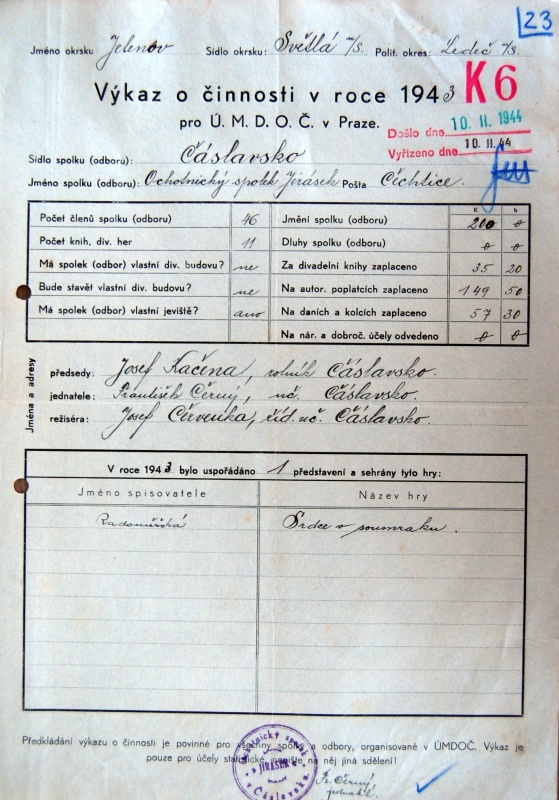 23
Jméno okrsku Jelenov Sídlo okrsku: Světlá n/S. Polit. okres: Ledeč n/S.
Výkaz o činnosti v roce 1943 K6
pro Ú. M. D. O. Č. v Praze.
Došlo dne 10. II. 1944
Vyřízeno dne 10. II. 44
Sídlo spolku (odboru): Čáslavsko
Jméno spolku (odboru): Ochotnický spolek Jirásek Pošta Čechtice.
Počet členů spolku (odboru) 46
Počet knih, div. her 11
Má spolek (odbor) vlastní div. budovu? ne
Bude stavět vlastní div. budovu? ne
Má spolek (odbor) vlastní jeviště? ano
K h
Jmění spolku (odboru) 200 0
Dluhy spolku (odboru) 0 0
Za divadelní knihy zaplaceno 35 20
Na autor. poplatcích zaplaceno 149 50
Na daních a kolcích zaplaceno 57 30
Na nár. a dobroč. účely odvedeno 0 0
Jména a adresy
předsedy: Josef Kačena, rolník Čáslavsko.
jednatele: František Černý, uč. Čáslavsko.
režiséra: Josef Červenka, říd. uč. Čáslavsko.
V roce 1943 bylo uspořádáno 1 představení a sehrány tyto hry:
Jméno spisovatele Název hry
Radoměřská Srdce v soumraku.
Předkládání výkazu o činnosti je povinné pro všechny spolky a odbory, organisované v ÚMDOČ. Výkaz je
pouze pro účely statistické, nepište na něj jiná sdělení!
Ochotnický spolek
JIRÁSEK
v Čáslavsku
Fr. Černý
jednatel.